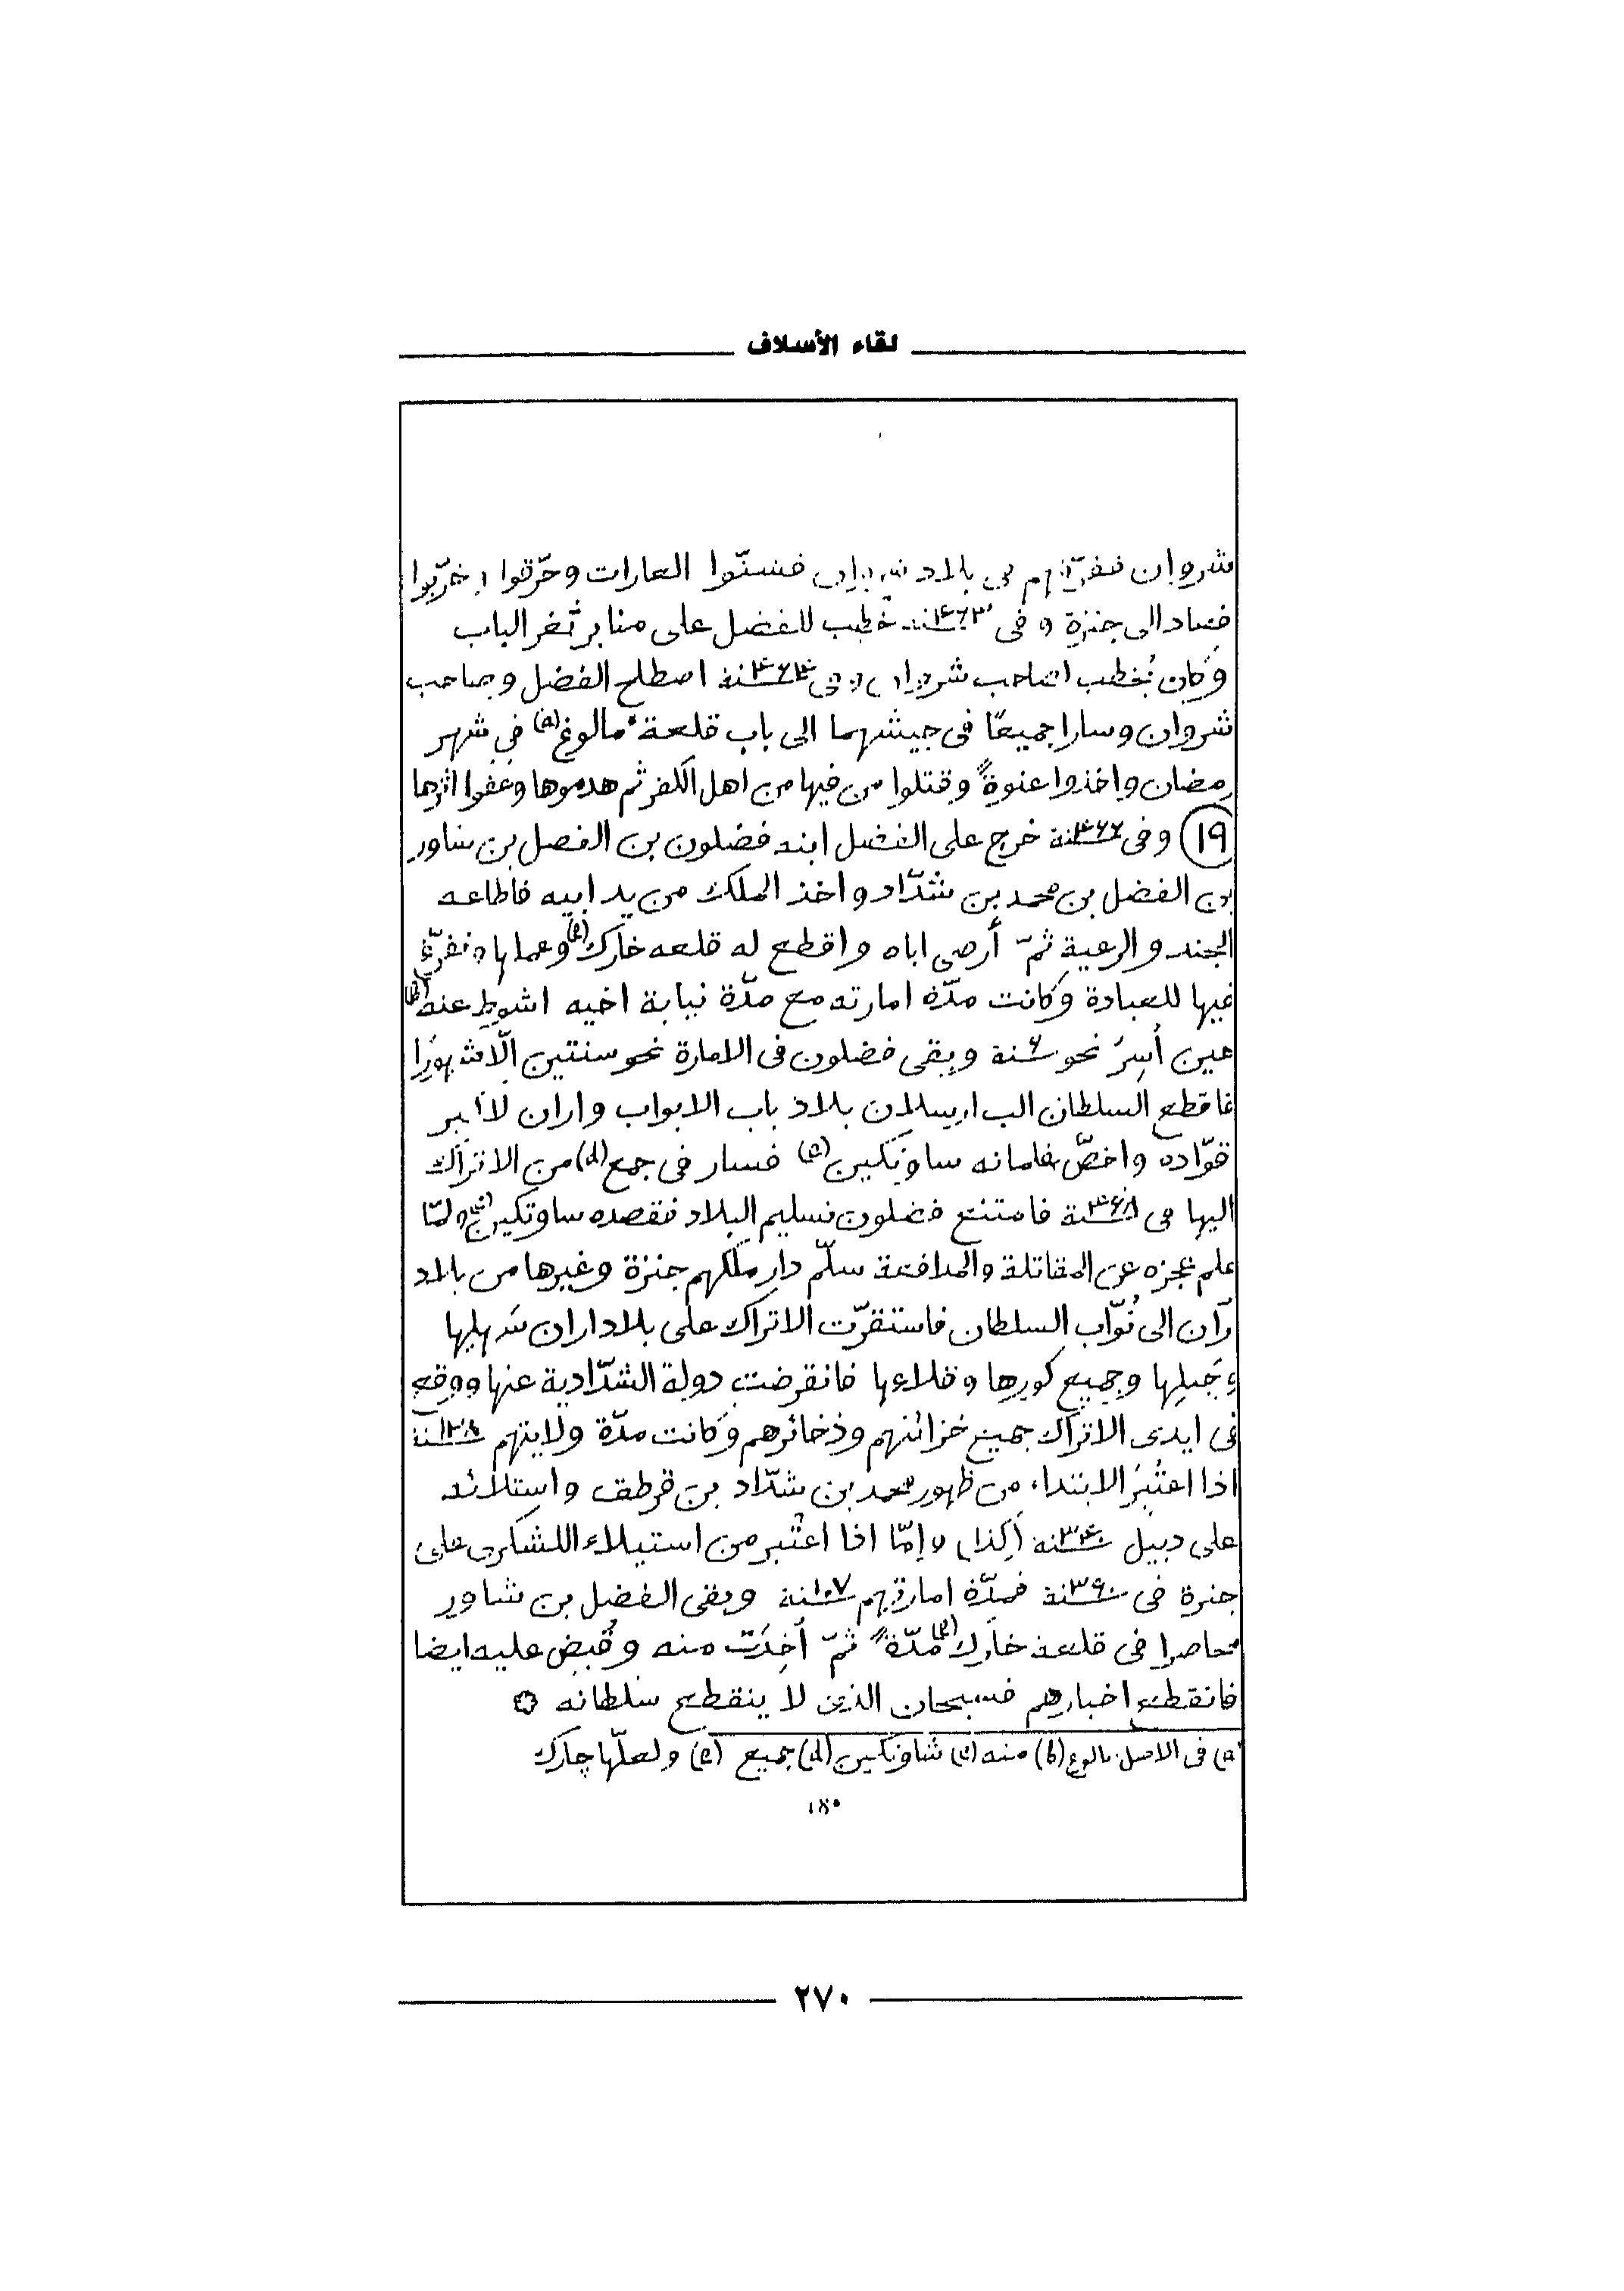 لقاء الأسلاف
شروان ففرّقهم فى بلاد شروان فشنّوا الغارات وحرّقوا وخرّبوا
فعاد الى جنزة وفى سنة ٤٦٣ خطب للفضل على منابر ثغر الباب
وكان يُخطب لصاحب شروان وفى سنة ٤٦٤ اصطلح الفضل وصاحب
شروان وسارا جميعًا فى جيشهما الى باب قلعة مالوغ (a) فى شهر
رمضان واخذوا عنوةً وقتلوا من فيها من اهل الكفر ثم هدموها وعفوا اثرها
(١٩) وفى سنة ٤٦٦ خرج على الفضل ابنه فضلون بن الفضل بن شاور
بن الفضل بن محمد بن شدّاد واخذ الملك من يد ابيه فاطاعه
الجند والرعية ثمّ أرضى اباه واقطع له قلعه خارك (e) وعملها وتفرّغ
فيها للعبادة وكانت مدّة امارته مع مدّة نيابة اخيه اشوط عنه (b)
حين أُسِرَ نحو سنة وبقى فضلون فى الامارة نحو سنتين الّا شهورًا
فاقطع السلطان الب ارسلان بلاد باب الابواب واران لاكبر
قوّاده واخصّ غلمانه ساوتكين (c) فسار فى جمع (d) من الاتراك
اليها فى سنة ٤٦٨ فامتنع فضلون تسليم البلاد فقصده ساوتكين (c) ولمّا
علم عجزه عن المقاتلة والمدافعة سلّم دار ملكهم جنزة وغيرها من بلاد
رّان الى نُوّاب السلطان فاستقرّت الاتراك على بلاد اران سهلِها
وجَبلِها وجميع كورها وقلاعها فانقرضت دولة الشدّادية عنها ووقع
فى ايدى الاتراك جميع خزائنهم وذخائرهم وكانت مدّة ولايتهم سنة ١٢٨
اذا اعتُبِرَ الابتداء من ظهور محمد بن شدّاد بن قرطق واستلائه
على دبيل سنة ٣٤٠ [كذا] وامّا اذا اعتُبر من استيلاء اللشكرى على
جنزة فى سنة ٣٦٠ فمدّة امارتهم سنة ١٠٧ وبقى الفضل بن شاور
محاصرا فى قلعة خارك (e) مدّةً ثمّ أُخِذَت منه وقُبض عليه ايضا
فانقطع اخبارهم فسبحان الذى لا ينقطع سلطانه
(a) فى الاصل: بالوغ (b) منه (c) شاوتكين (d) جميع (e) ولعلّها چارك
١٨٠
٢٧٠